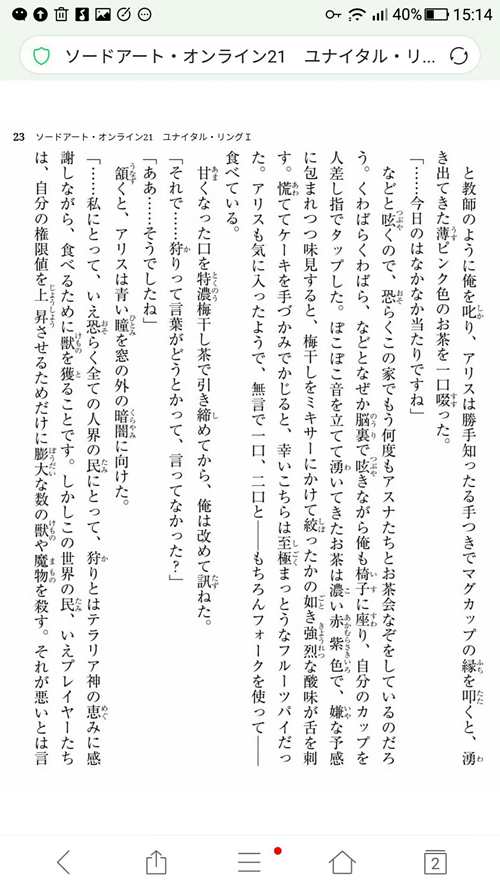 40% 15:14
ソードアート・オンライン21　ユナイタル・リ...
23　ソードアート・オンライン21　ユナイタル・リングⅠ
と教師のように俺を叱り、アリスは勝手知ったる手つきでマグカップの縁を叩くと、湧
き出てきた薄ピンク色のお茶を一口啜った。
「……今日のはなかなか当たりですね」
などと呟くので、恐らくこの家でもう何度もアスナたちとお茶会なぞをしているのだろ
う。くわばらくわばら、などとなぜか脳裏で呟きながら俺も椅子に座り、自分のカップを
人差し指でタップした。ぽこぽこ音を立てて湧いてきたお茶は濃い赤紫色で、嫌な予感
に包まれつつ味見すると、梅干しをミキサーにかけて絞ったかの如き強烈な酸味が舌を刺
す。慌ててケーキを手づかみでかじると、幸いこちらは至極まっとうなフルーツパイだっ
た。アリスも気に入ったようで、無言で一口、二口と――もちろんフォークを使って――
食べている。
甘くなった口を特濃梅干し茶で引き締めてから、俺は改めて訊ねた。
「それで……狩りって言葉がどうとかって、言ってなかった？」
「ああ……そうでしたね」
頷くと、アリスは青い瞳を窓の外の暗闇に向けた。
「……私にとって、いえ恐らく全ての人界の民にとって、狩りとはテラリア神の恵みに感
謝しながら、食べるために獣を獲ることです。しかしこの世界の民、いえプレイヤーたち
は、自分の権限値を上昇させるためだけに膨大な数の獣や魔物を殺す。それが悪いとは言
2